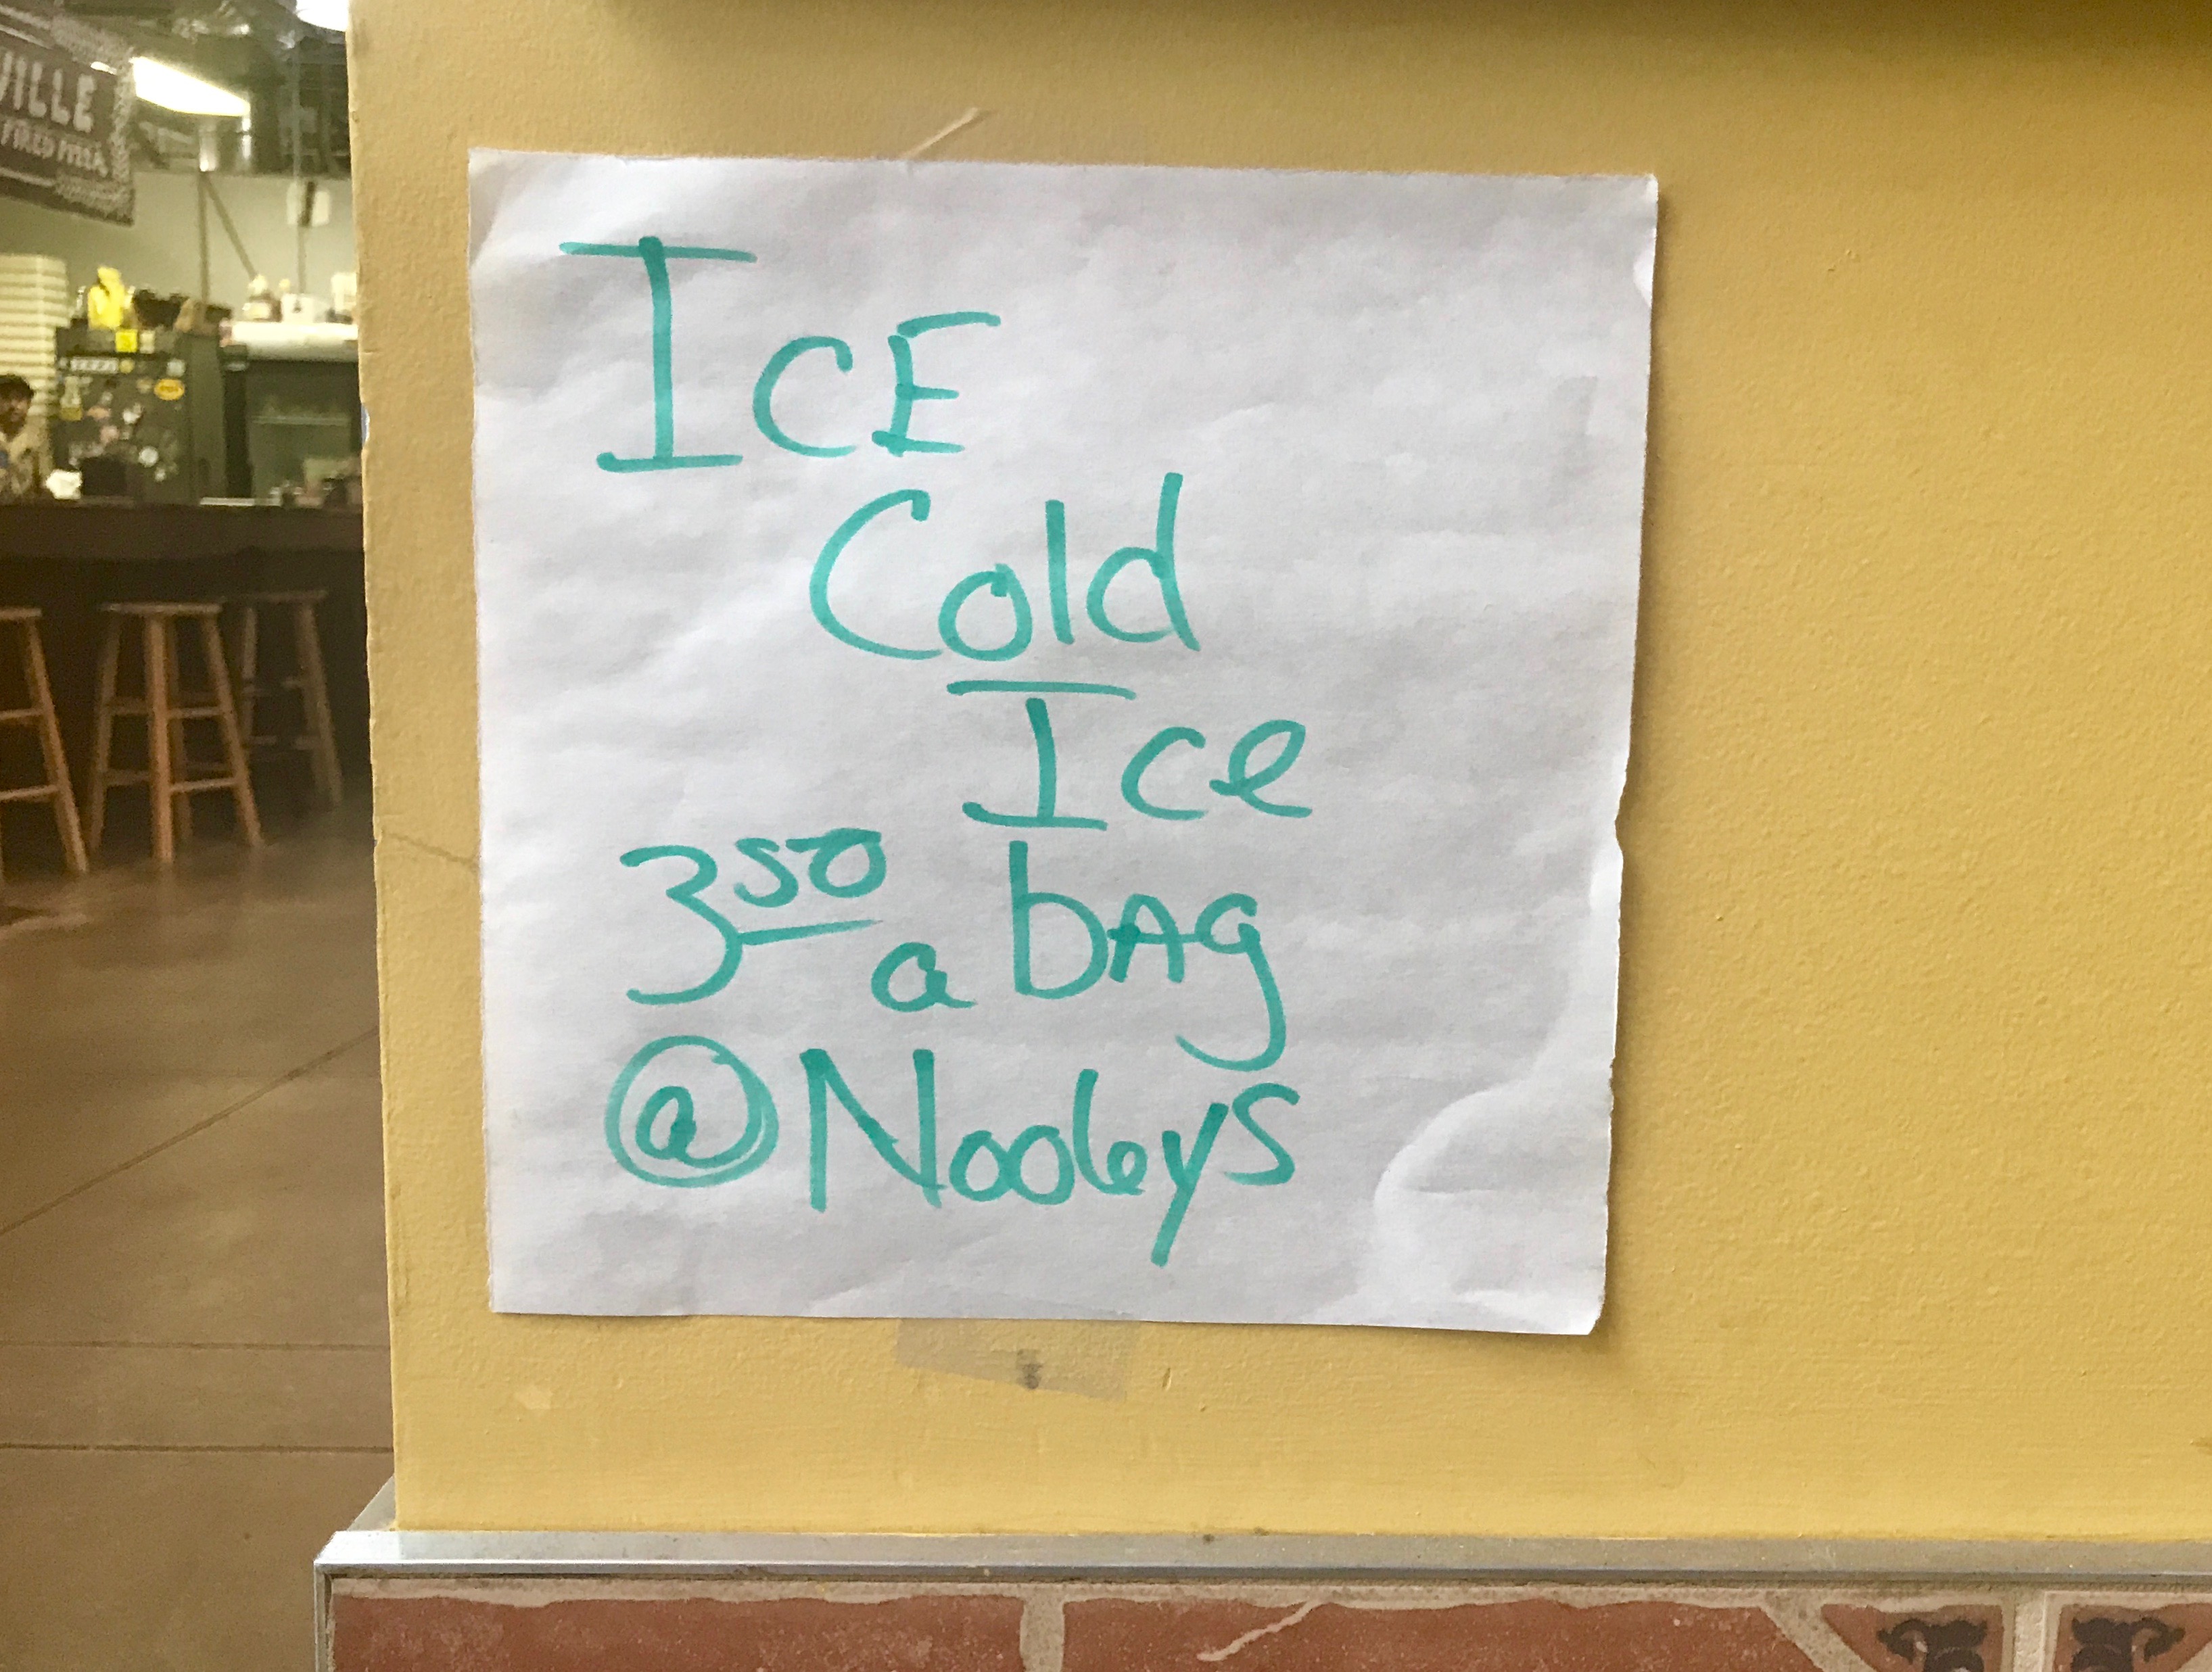 VILLE
FIRED PIZZA
ICE
Cold
Ice
3 50 a bAg
@Nooleys